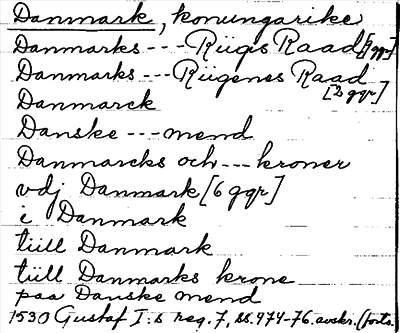 Danmark, konungarike
Danmarks --- Rügis Raad [3 ggr]
Danmarks --- Rügenes Raad
[2 ggr]
Danmarck
Danske --- mend
Danmarcks och --- kroner
vdj Danmark [6 ggr]
i Danmark
tüll Danmark
tüll Danmarks krone
paa Danske mend
1530 Gustaf I:s reg. 7, ss. 474-76. avskr. (forts.